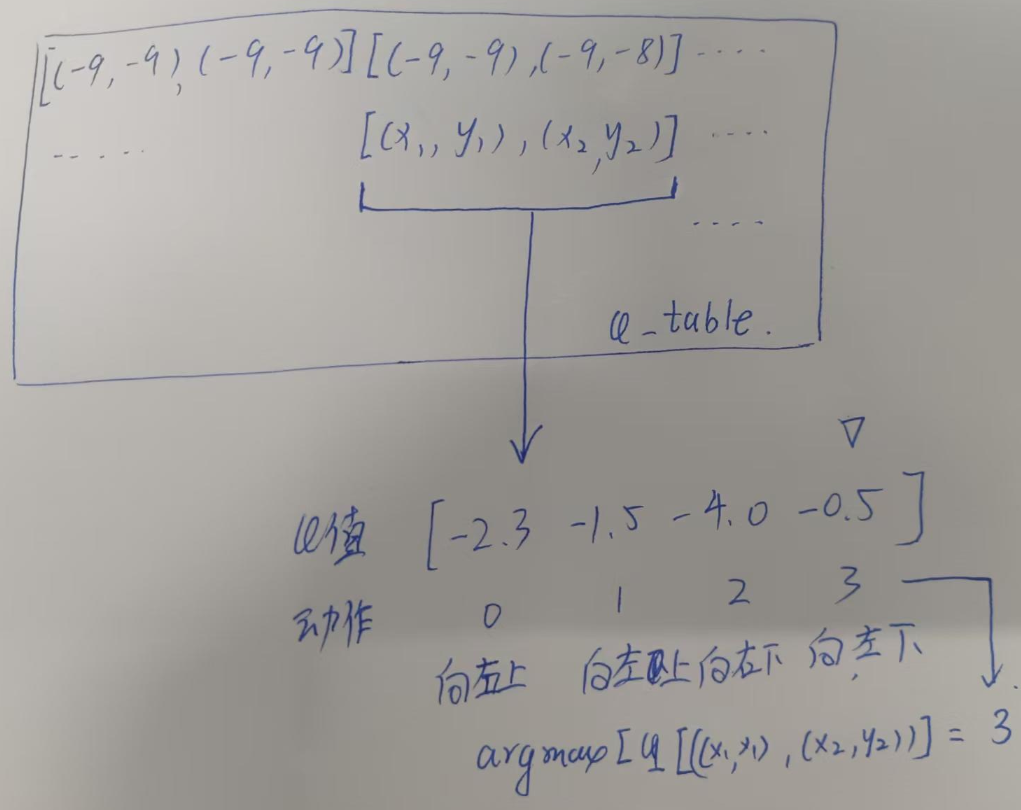 [(-9, -9), (-9, -9)] [(-9, -9), (-9, -8)] ....
..... [(x₁, y₁), (x₂, y₂)] ....
....
Q_table.
Q值 [-2.3 -1.5 -4.0 -0.5]
动作 0 1 2 3
向上 向左上 向右下 向左下
argmax[Q[((x₁, y₁), (x₂, y₂))] = 3